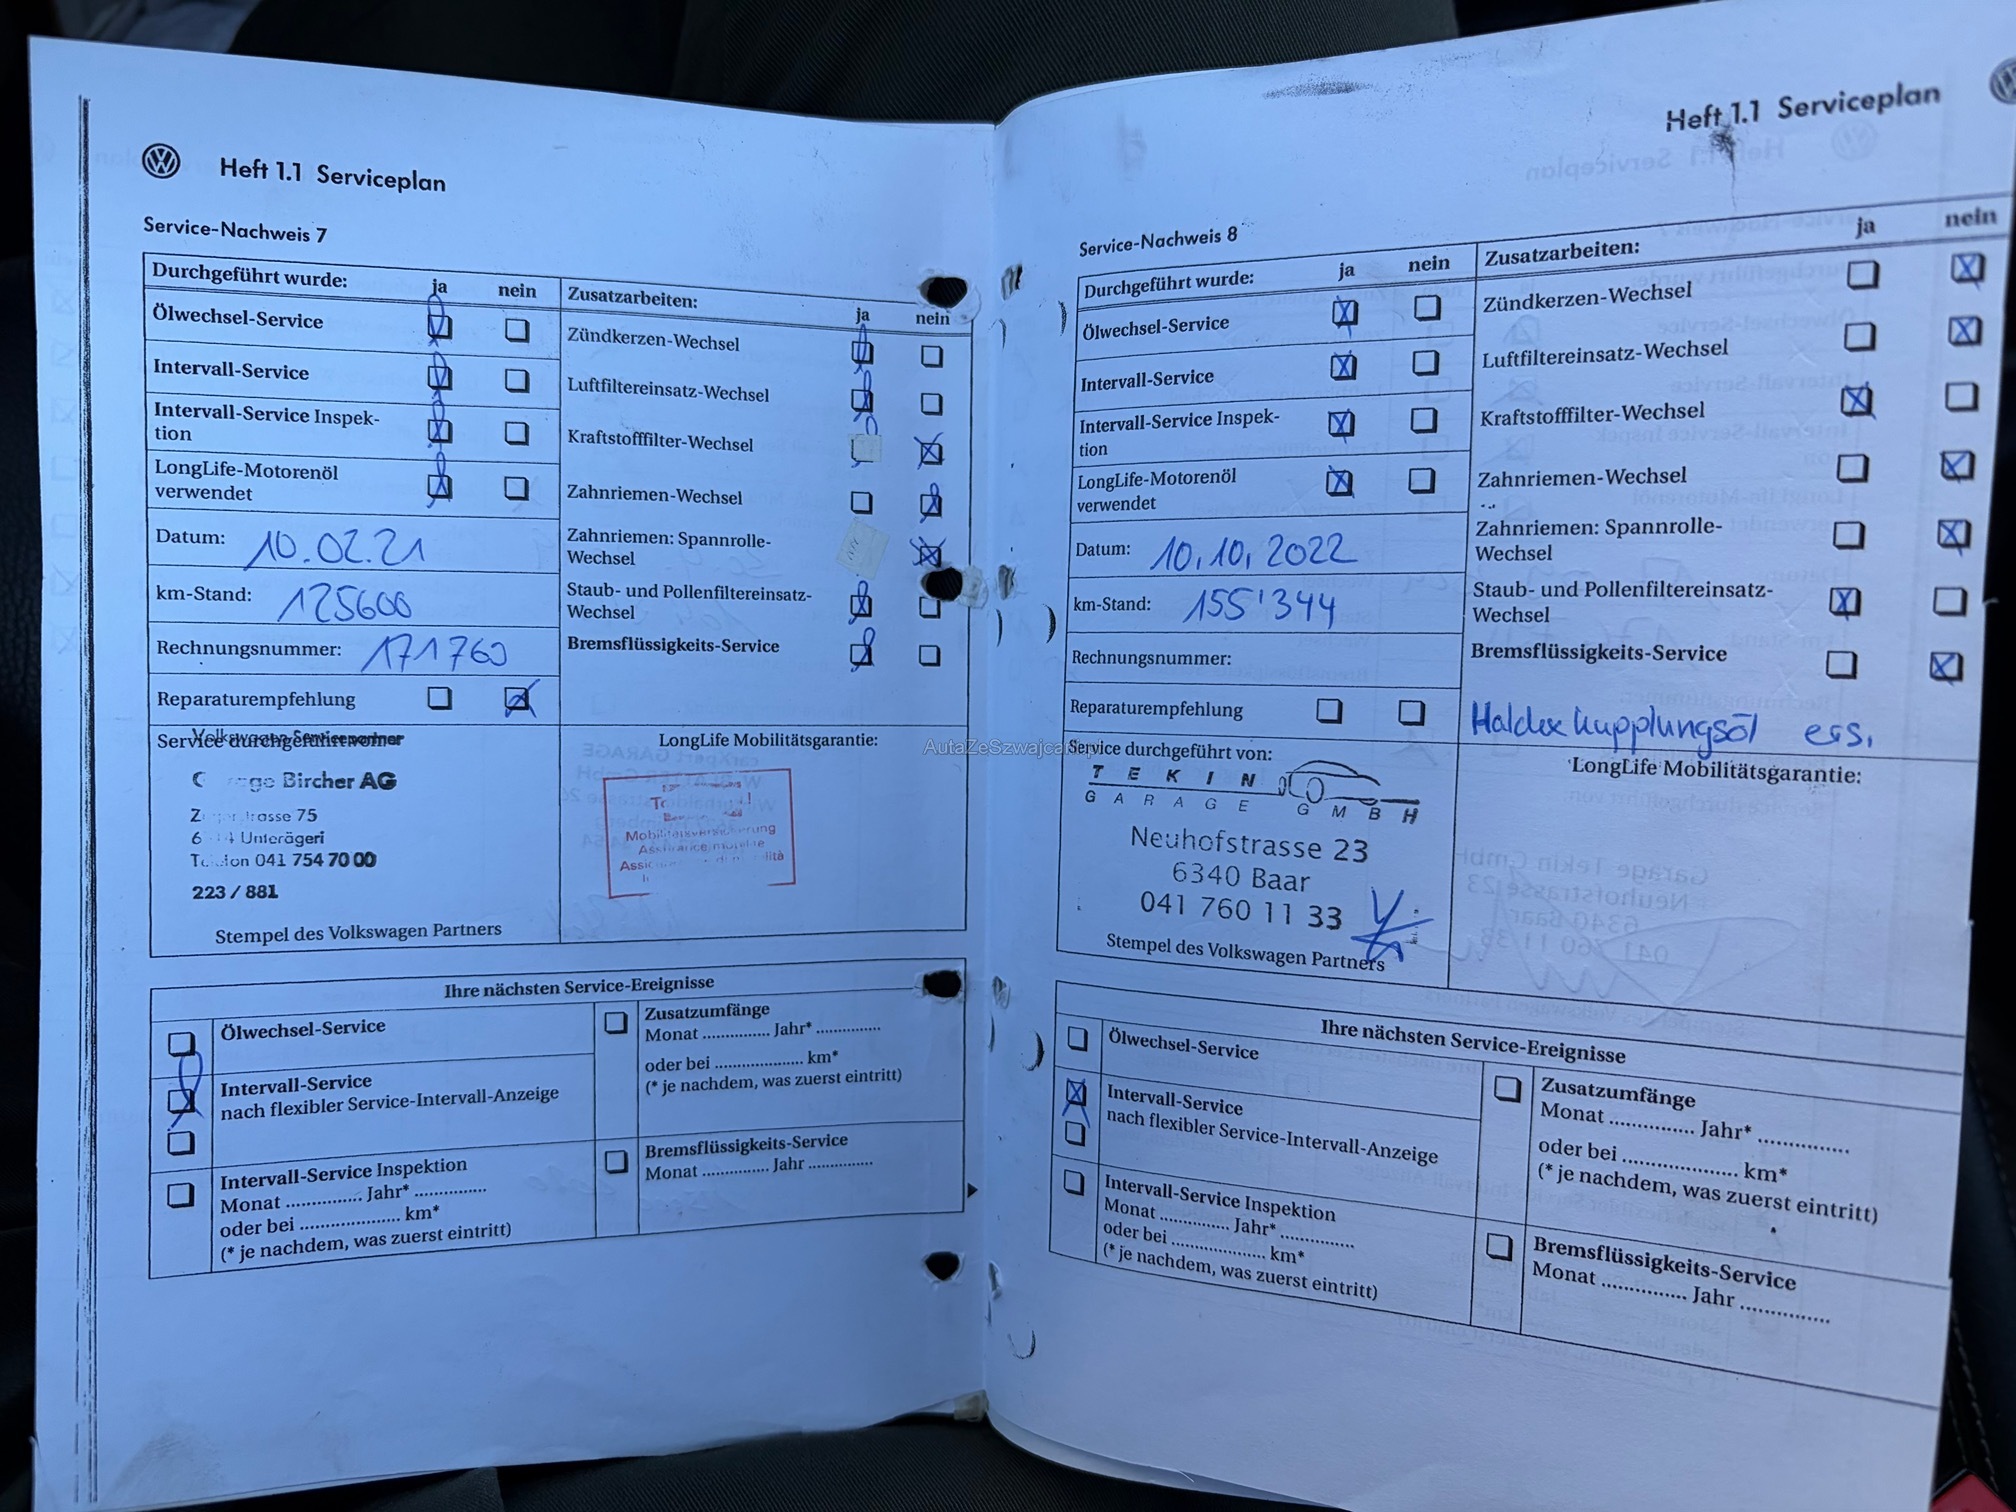 Heft 1.1 Serviceplan
Service-Nachweis 7
Durchgeführt wurde:
ja
nein
Zusatzarbeiten:
ja
nein
Ölwechsel-Service
Zündkerzen-Wechsel
Intervall-Service
Luftfiltereinsatz-Wechsel
Intervall-Service Inspek-
tion
Kraftstofffilter-Wechsel
LongLife-Motorenöl
verwendet
Zahnriemen-Wechsel
Datum: 10.02.21
Zahnriemen: Spannrolle-
Wechsel
km-Stand: 125600
Staub- und Pollenfiltereinsatz-
Wechsel
Rechnungsnummer: 171760
Bremsflüssigkeits-Service
Reparaturempfehlung
Volkswagen Servicepartner
Service durchgeführt von:
LongLife Mobilitätsgarantie:
Bircher AG
75
Unterägeri
041 754 70 00
223 / 881
Mobilitätsversicherung
Stempel des Volkswagen Partners
Ihre nächsten Service-Ereignisse
Ölwechsel-Service
Zusatzumfänge
Monat .............. Jahr* ...............
Intervall-Service
nach flexibler Service-Intervall-Anzeige
oder bei .................... km*
(* je nachdem, was zuerst eintritt)
Intervall-Service Inspektion
Monat .............. Jahr* ...............
oder bei .................... km*
(* je nachdem, was zuerst eintritt)
Bremsflüssigkeits-Service
Monat .............. Jahr ...............
Heft 1.1 Serviceplan
Service-Nachweis 8
Durchgeführt wurde:
ja
nein
Zusatzarbeiten:
ja
nein
Ölwechsel-Service
Zündkerzen-Wechsel
Intervall-Service
Luftfiltereinsatz-Wechsel
Intervall-Service Inspek-
tion
Kraftstofffilter-Wechsel
LongLife-Motorenöl
verwendet
Zahnriemen-Wechsel
Datum: 10.10.2022
Zahnriemen: Spannrolle-
Wechsel
km-Stand: 155'344
Staub- und Pollenfiltereinsatz-
Wechsel
Rechnungsnummer:
Bremsflüssigkeits-Service
Reparaturempfehlung
Haldex kupplungsöl ers.
Service durchgeführt von:
LongLife Mobilitätsgarantie:
TEKIN
GARAGE GMBH
Neuhofstrasse 23
6340 Baar
041 760 11 33
Stempel des Volkswagen Partners
Ihre nächsten Service-Ereignisse
Ölwechsel-Service
Zusatzumfänge
Monat ............... Jahr* ...............
Intervall-Service
nach flexibler Service-Intervall-Anzeige
oder bei .................... km*
(* je nachdem, was zuerst eintritt)
Intervall-Service Inspektion
Monat .............. Jahr* ...............
oder bei .................... km*
(* je nachdem, was zuerst eintritt)
Bremsflüssigkeits-Service
Monat ............... Jahr ...............